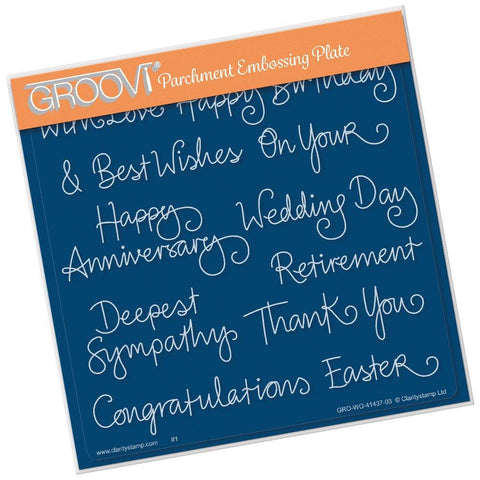 GROOVI® Parchment Embossing Plate
With Love Happy Birthday
& Best Wishes On Your
Happy Anniversary Wedding Day
Retirement
Deepest Sympathy Thank You
Congratulations Easter
www.claritystamp.com #1 GRO-WO-41437-03 © Claritystamp Ltd